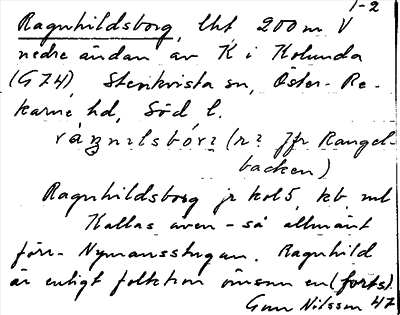 1-2
Ragnhildsborg, lht 200 m V
nedre ändan av K i Kolunda
(G74), Stenkvista sn, Öster-Re-
karne hd, Söd l.
(r? Jfr Rangel-
backen)
Ragnhildsborg jr kol 5, kb, ml
Kallas även - så allmänt
förr - Nymansstugan. Ragnhild
är enligt folktron namn en (forts).
Gun Nilsson 47